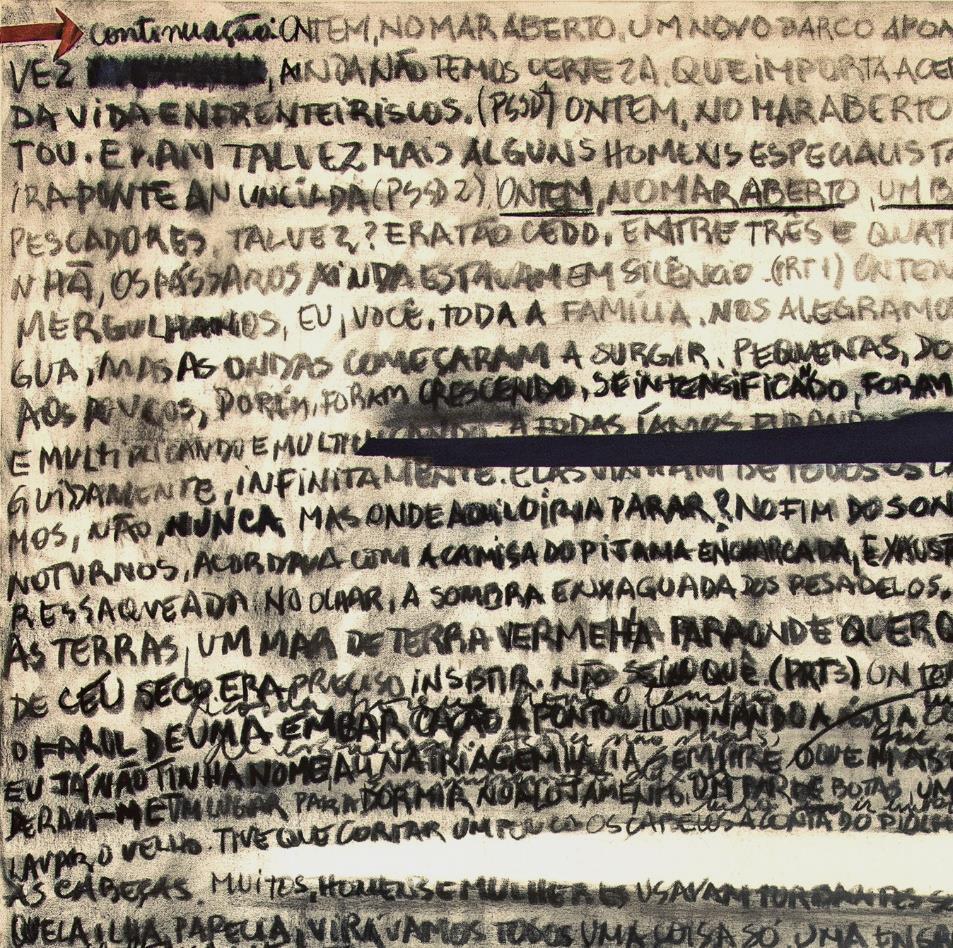 continuação: ONTEM, NO MAR ABERTO, UM NOVO BARCO APON
VEZ , AINDA NÃO TEMOS CERTEZA. QUE IMPORTA ACER
DA VIDA ENFRENTEI RISCOS. (PSSD1) ONTEM, NO MAR ABERTO
TOU. ERAM TALVEZ MAIS ALGUNS HOMENS ESPECIALISTA
IRA PONTE ANUNCIADA (PSSD2) ONTEM, NO MAR ABERTO, UM B
PESCADORES, TALVEZ? ERA TÃO CEDO, ENTRE TRÊS E QUAT
NHÃ, OS PÁSSAROS AINDA ESTAVAM EM SILÊNCIO. (PRT1) ONTEM
MERGULHAMOS, EU, VOCÊ, TODA A FAMÍLIA. NOS ALEGRAMOS
GUA, MAS AS ONDAS COMEÇARAM A SURGIR. PEQUENAS, DO
AOS POUCOS, PORÉM, FORAM CRESCENDO, SE INTENSIFICADO, FORAM
E MULTIPLICANDO E MULTIPLICANDO. A TODAS ÍAMOS FURANDO
GUIDAMENTE, INFINITAMENTE. ELAS VINHAM DE TODOS OS LA
MOS, NÃO, NUNCA. MAS ONDE AQUILO IRIA PARAR? NO FIM DO SON
NOTURNOS, ACORDAVA COM A CAMISA DO PIJAMA ENCHARCADA, EXAUST
RESSAQUEADA NO OLHAR, A SOMBRA ENXAGUADA DOS PESADELOS.
ÀS TERRAS, UM MAR DE TERRA VERMELHA PARA ONDE QUER Q
DE CÉU SECO. ERA PRECISO INSISTIR. NÃO SEI O QUÊ. (PRT3) ONTEM
O FAROL DE UMA EMBARCAÇÃO APONTOU ILUMINANDO A ÁGUA CO
EU JÁ NÃO TINHA NOME ALI NA TRIAGEM HAVIA SEMPRE QUEM AS
DERAM-ME UM LUGAR PARA DORMIR NO ALOJAMENTO. UM PAR DE BOTAS, UM
LAVAR O VELHO. TIVE QUE CORTAR UM POUCO OS CABELOS A CONTA DO PIOLH
AS CABEÇAS. MUITOS, HOMENS E MULHERES USAVAM TURBANTES
QUELA ILHA, PAPELIA, VIRÁVAMOS TODOS UMA COISA SÓ UMA